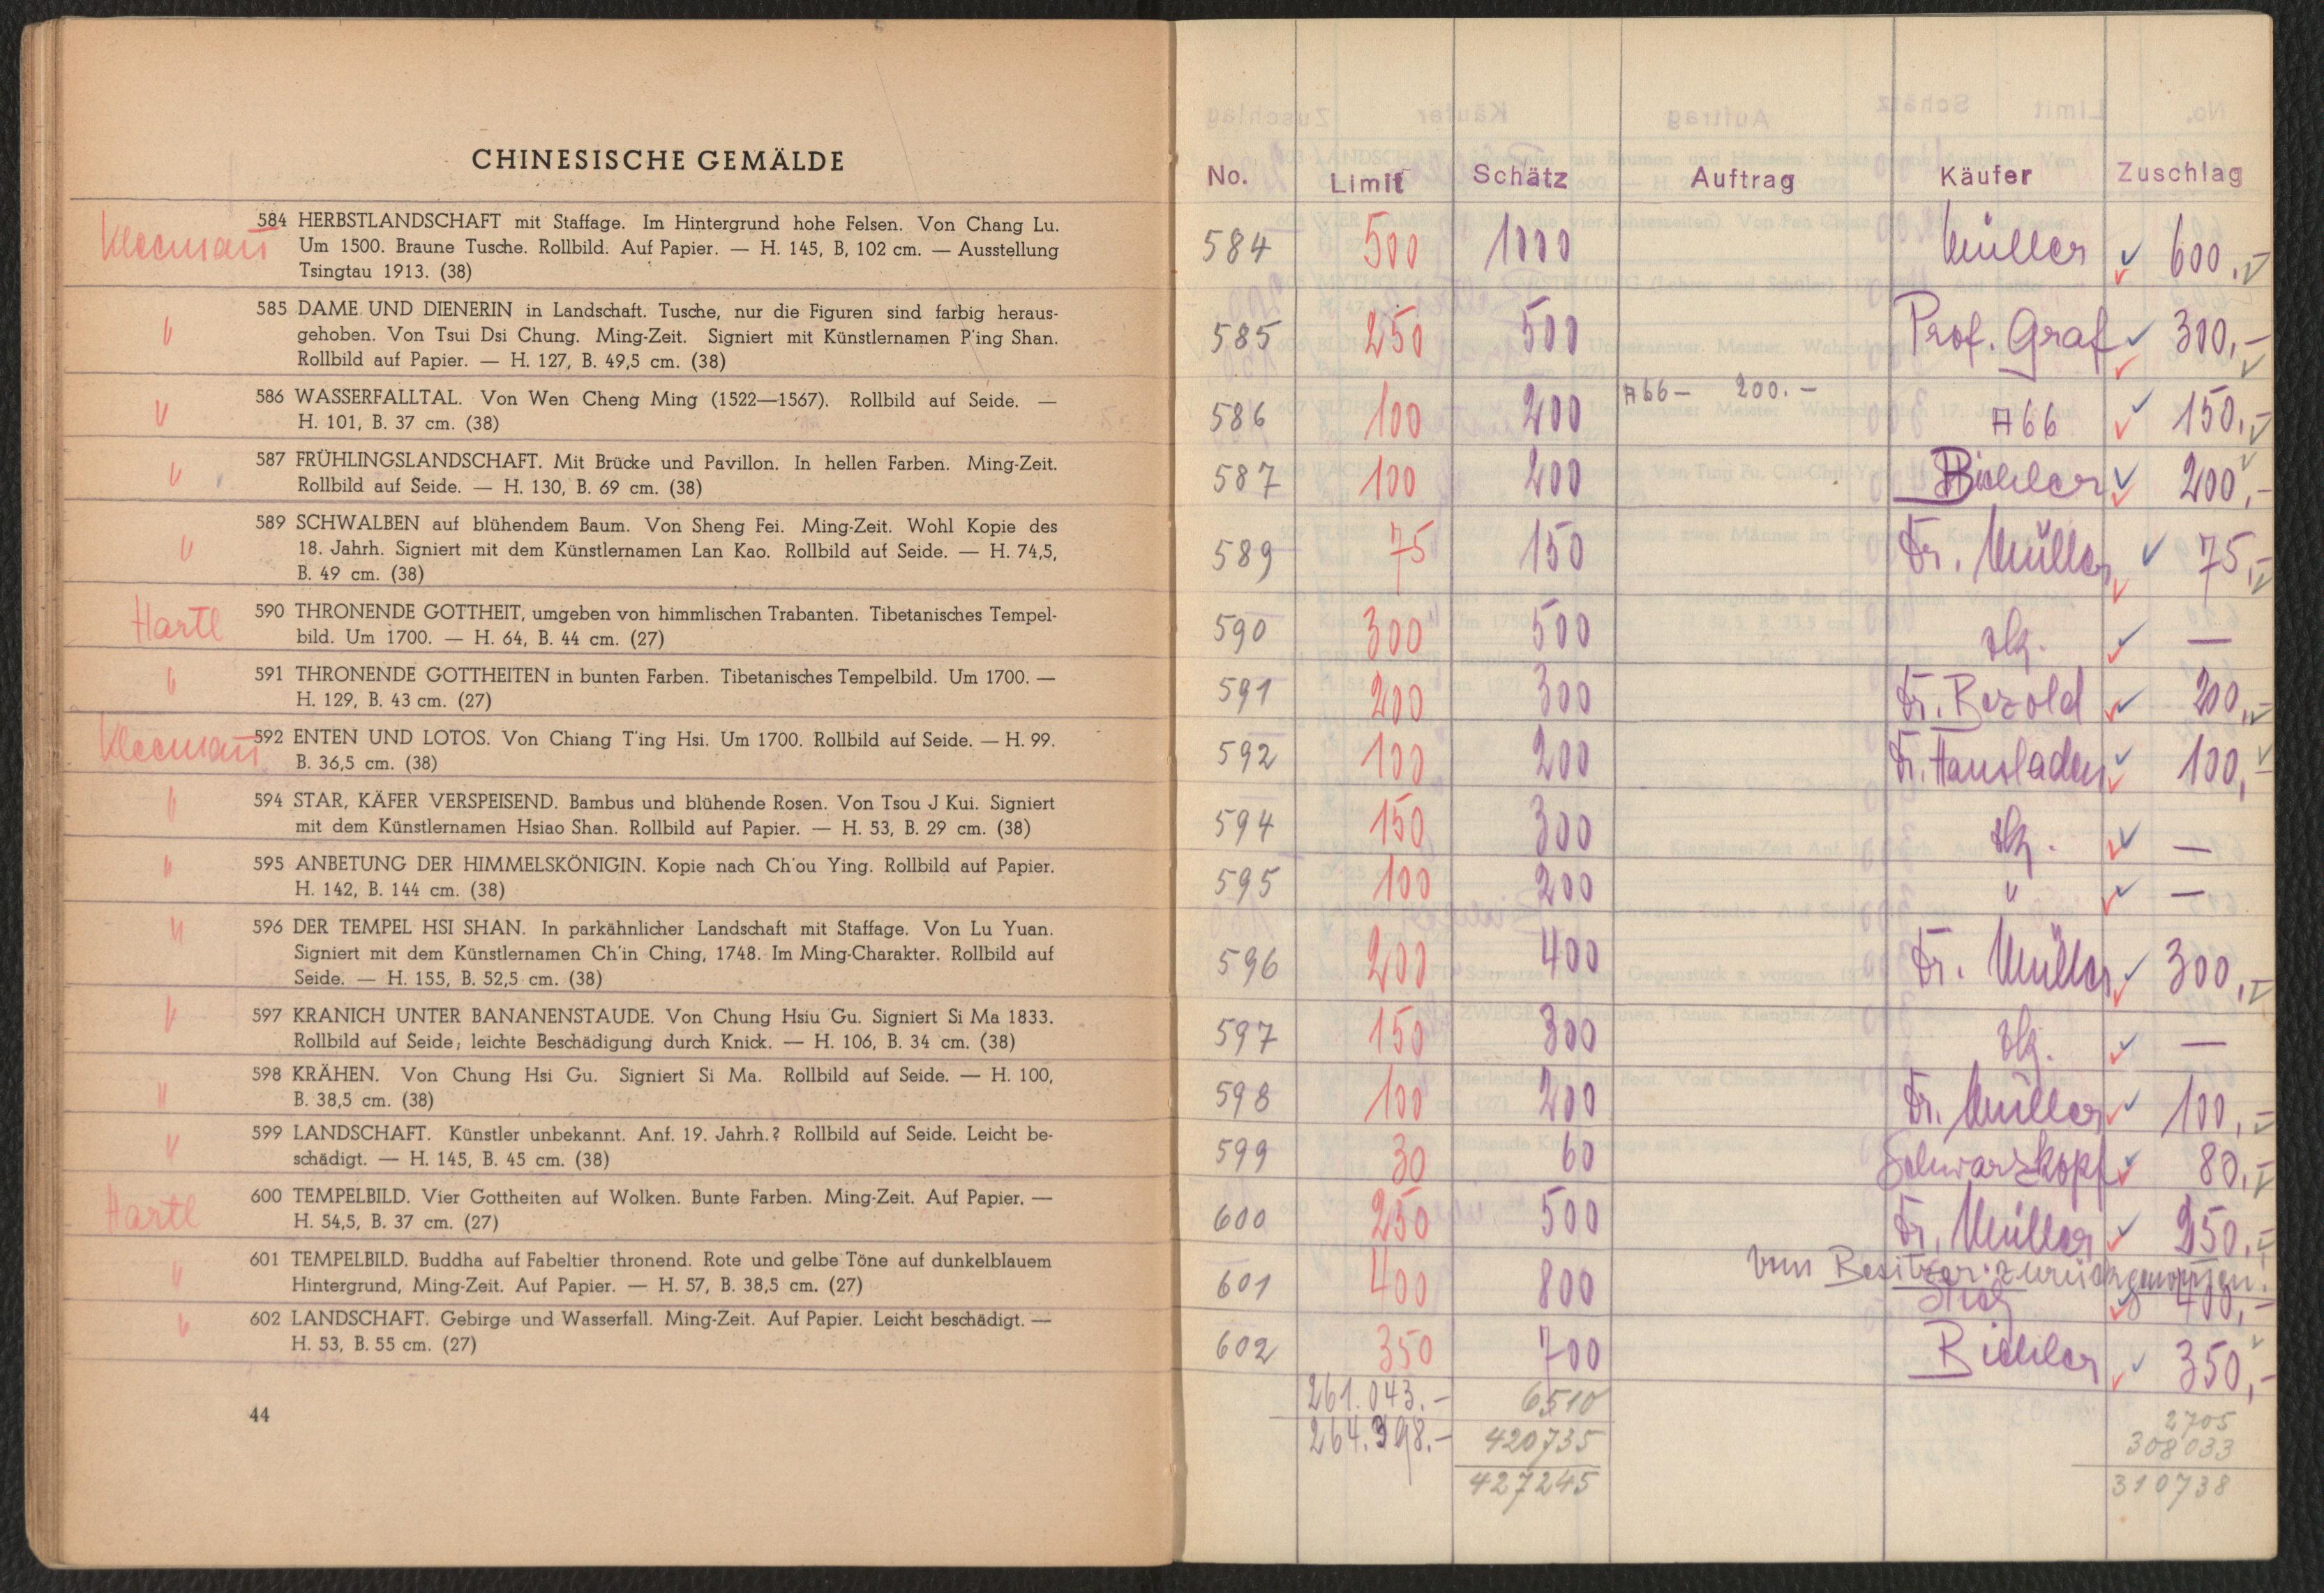 CHINESISCHE GEMÄLDE
Kleemann
584 HERBSTLANDSCHAFT mit Staffage. Im Hintergrund hohe Felsen. Von Chang Lu.
Um 1500. Braune Tusche. Rollbild. Auf Papier. — H. 145, B, 102 cm. — Ausstellung
Tsingtau 1913. (38)
"
585 DAME UND DIENERIN in Landschaft. Tusche, nur die Figuren sind farbig heraus-
gehoben. Von Tsui Dsi Chung. Ming-Zeit. Signiert mit Künstlernamen P'ing Shan.
Rollbild auf Papier. — H. 127, B. 49,5 cm. (38)
"
586 WASSERFALLTAL. Von Wen Cheng Ming (1522—1567). Rollbild auf Seide. —
H. 101, B. 37 cm. (38)
"
587 FRÜHLINGSLANDSCHAFT. Mit Brücke und Pavillon. In hellen Farben. Ming-Zeit.
Rollbild auf Seide. — H. 130, B. 69 cm. (38)
"
589 SCHWALBEN auf blühendem Baum. Von Sheng Fei. Ming-Zeit. Wohl Kopie des
18. Jahrh. Signiert mit dem Künstlernamen Lan Kao. Rollbild auf Seide. — H. 74,5,
B. 49 cm. (38)
Hartl
590 THRONENDE GOTTHEIT, umgeben von himmlischen Trabanten. Tibetanisches Tempel-
bild. Um 1700. — H. 64, B. 44 cm. (27)
"
591 THRONENDE GOTTHEITEN in bunten Farben. Tibetanisches Tempelbild. Um 1700. —
H. 129, B. 43 cm. (27)
Kleemann
592 ENTEN UND LOTOS. Von Chiang T'ing Hsi. Um 1700. Rollbild auf Seide. — H. 99.
B. 36,5 cm. (38)
"
594 STAR, KÄFER VERSPEISEND. Bambus und blühende Rosen. Von Tsou J Kui. Signiert
mit dem Künstlernamen Hsiao Shan. Rollbild auf Papier. — H. 53, B. 29 cm. (38)
"
595 ANBETUNG DER HIMMELSKÖNIGIN. Kopie nach Ch'ou Ying. Rollbild auf Papier.
H. 142, B. 144 cm. (38)
"
596 DER TEMPEL HSI SHAN. In parkähnlicher Landschaft mit Staffage. Von Lu Yuan.
Signiert mit dem Künstlernamen Ch'in Ching, 1748. Im Ming-Charakter. Rollbild auf
Seide. — H. 155, B. 52,5 cm. (38)
"
597 KRANICH UNTER BANANENSTAUDE. Von Chung Hsiu Gu. Signiert Si Ma 1833.
Rollbild auf Seide; leichte Beschädigung durch Knick. — H. 106, B. 34 cm. (38)
"
598 KRÄHEN. Von Chung Hsi Gu. Signiert Si Ma. Rollbild auf Seide. — H. 100,
B. 38,5 cm. (38)
"
599 LANDSCHAFT. Künstler unbekannt. Anf. 19. Jahrh.? Rollbild auf Seide. Leicht be-
schädigt. — H. 145, B. 45 cm. (38)
Hartl
600 TEMPELBILD. Vier Gottheiten auf Wolken. Bunte Farben. Ming-Zeit. Auf Papier. —
H. 54,5, B. 37 cm. (27)
"
601 TEMPELBILD. Buddha auf Fabeltier thronend. Rote und gelbe Töne auf dunkelblauem
Hintergrund, Ming-Zeit. Auf Papier. — H. 57, B. 38,5 cm. (27)
"
602 LANDSCHAFT. Gebirge und Wasserfall. Ming-Zeit. Auf Papier. Leicht beschädigt. —
H. 53, B. 55 cm. (27)
44
No. Limit Schätz Auftrag Käufer Zuschlag
584 500 1000 Müller 600,-
585 250 500 Prof. Graf 300,-
A66 - 200.-
586 100 200 A66 150,-
587 100 200 Bichler 200,-
589 75 150 Dr. Müller 75,-
590 300 500 —
591 200 300 Dr. Bezold 200,-
592 100 200 Dr. Hausladen 100,-
594 150 300 —
595 100 200 " —
596 200 400 Dr. Müller 300,-
597 150 300 —
598 100 200 Dr. Müller 100,-
599 30 60 Schwarzkopf 80,-
600 250 500 Dr. Müller 250,-
vom Besitzer zurückgenommen.
601 400 800 400,-
602 350 700 Bichler 350,-
261.043.- 6510
264.398.- 420735
427245
2705
308033
310738